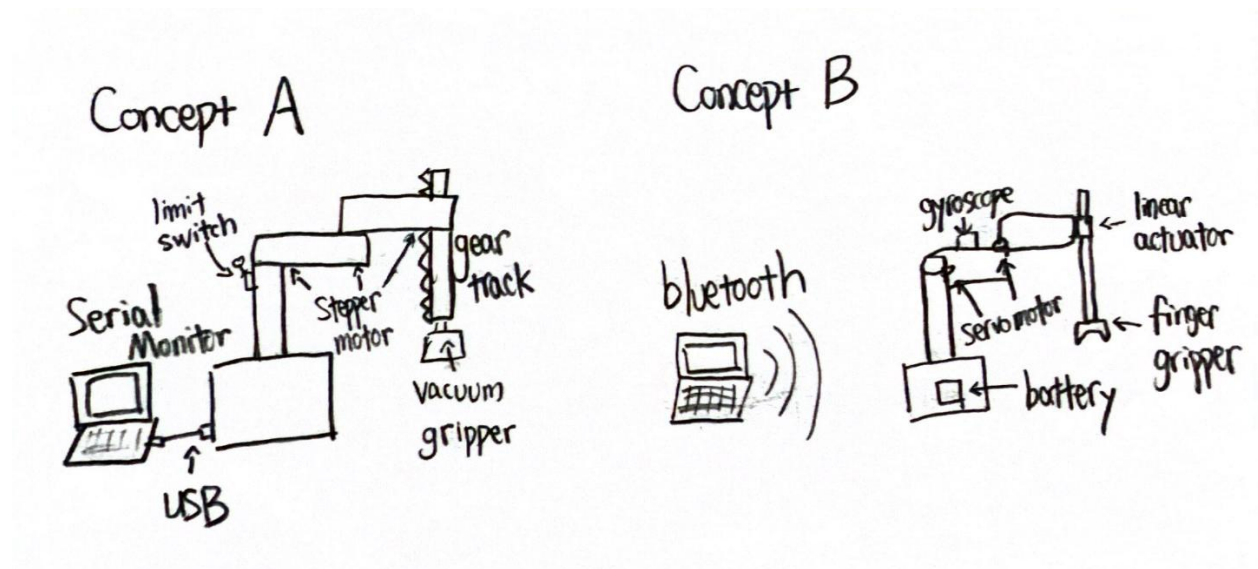 Concept A
limit
switch
Serial
Monitor
Stepper
motor
gear
track
vacuum
gripper
USB
Concept B
gyroscope
linear
actuator
bluetooth
servo motor
finger
gripper
battery